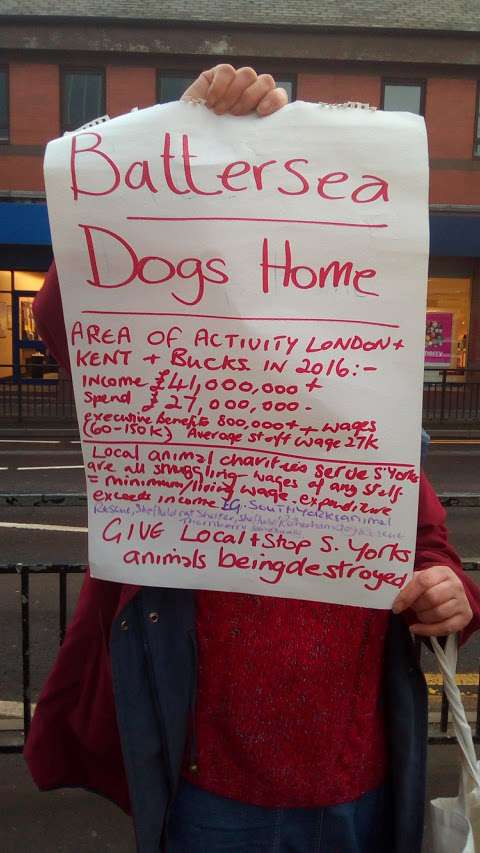 Battersea
Dogs Home
AREA OF ACTIVITY LONDON +
KENT + BUCKS IN 2016:-
Income £41,000,000 +
Spend £27,000,000 -
executive benefits 800,000+ + wages
(60-150K) Average staff wage 27K
Local animal charities serve S. Yorks
are all struggling - wages of any staff
= minimum/living wage. expenditure
exceeds income Eg. South Yorks animal
Rescue, Sheffield cat Shelter, Sheffield, Rotherham Dog Rescue
Thornberry
GIVE Local + Stop S. Yorks
animals being destroyed